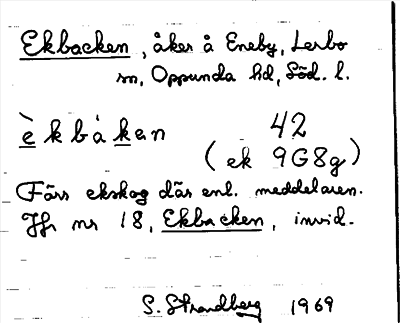 Ekbacken, åker å Eneby, Lerbo
sn, Oppunda hd, Söd. l.
èkbàken 42
(ek 9G8g)
Färs ekskog där enl. meddelaren.
Jfr nr 18, Ekbacken, invid.
S. Strandberg 1969